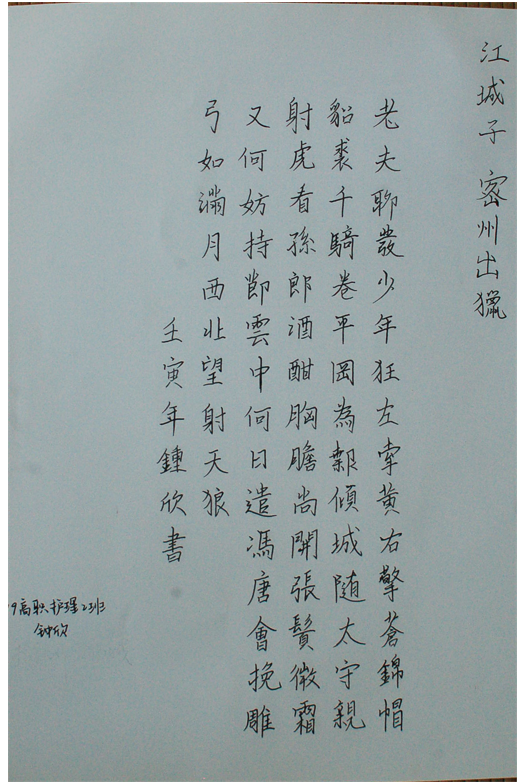 江城子 密州出獵
老夫聊發少年狂左牽黃右擎蒼錦帽
貂裘千騎卷平岡為報傾城随太守親
射虎看孫郎酒酣胸膽尚開張鬢微霜
又何妨持節雲中何日遣馮唐會挽雕
弓如滿月西北望射天狼
壬寅年鍾欣書
9高职护理23班
钟欣